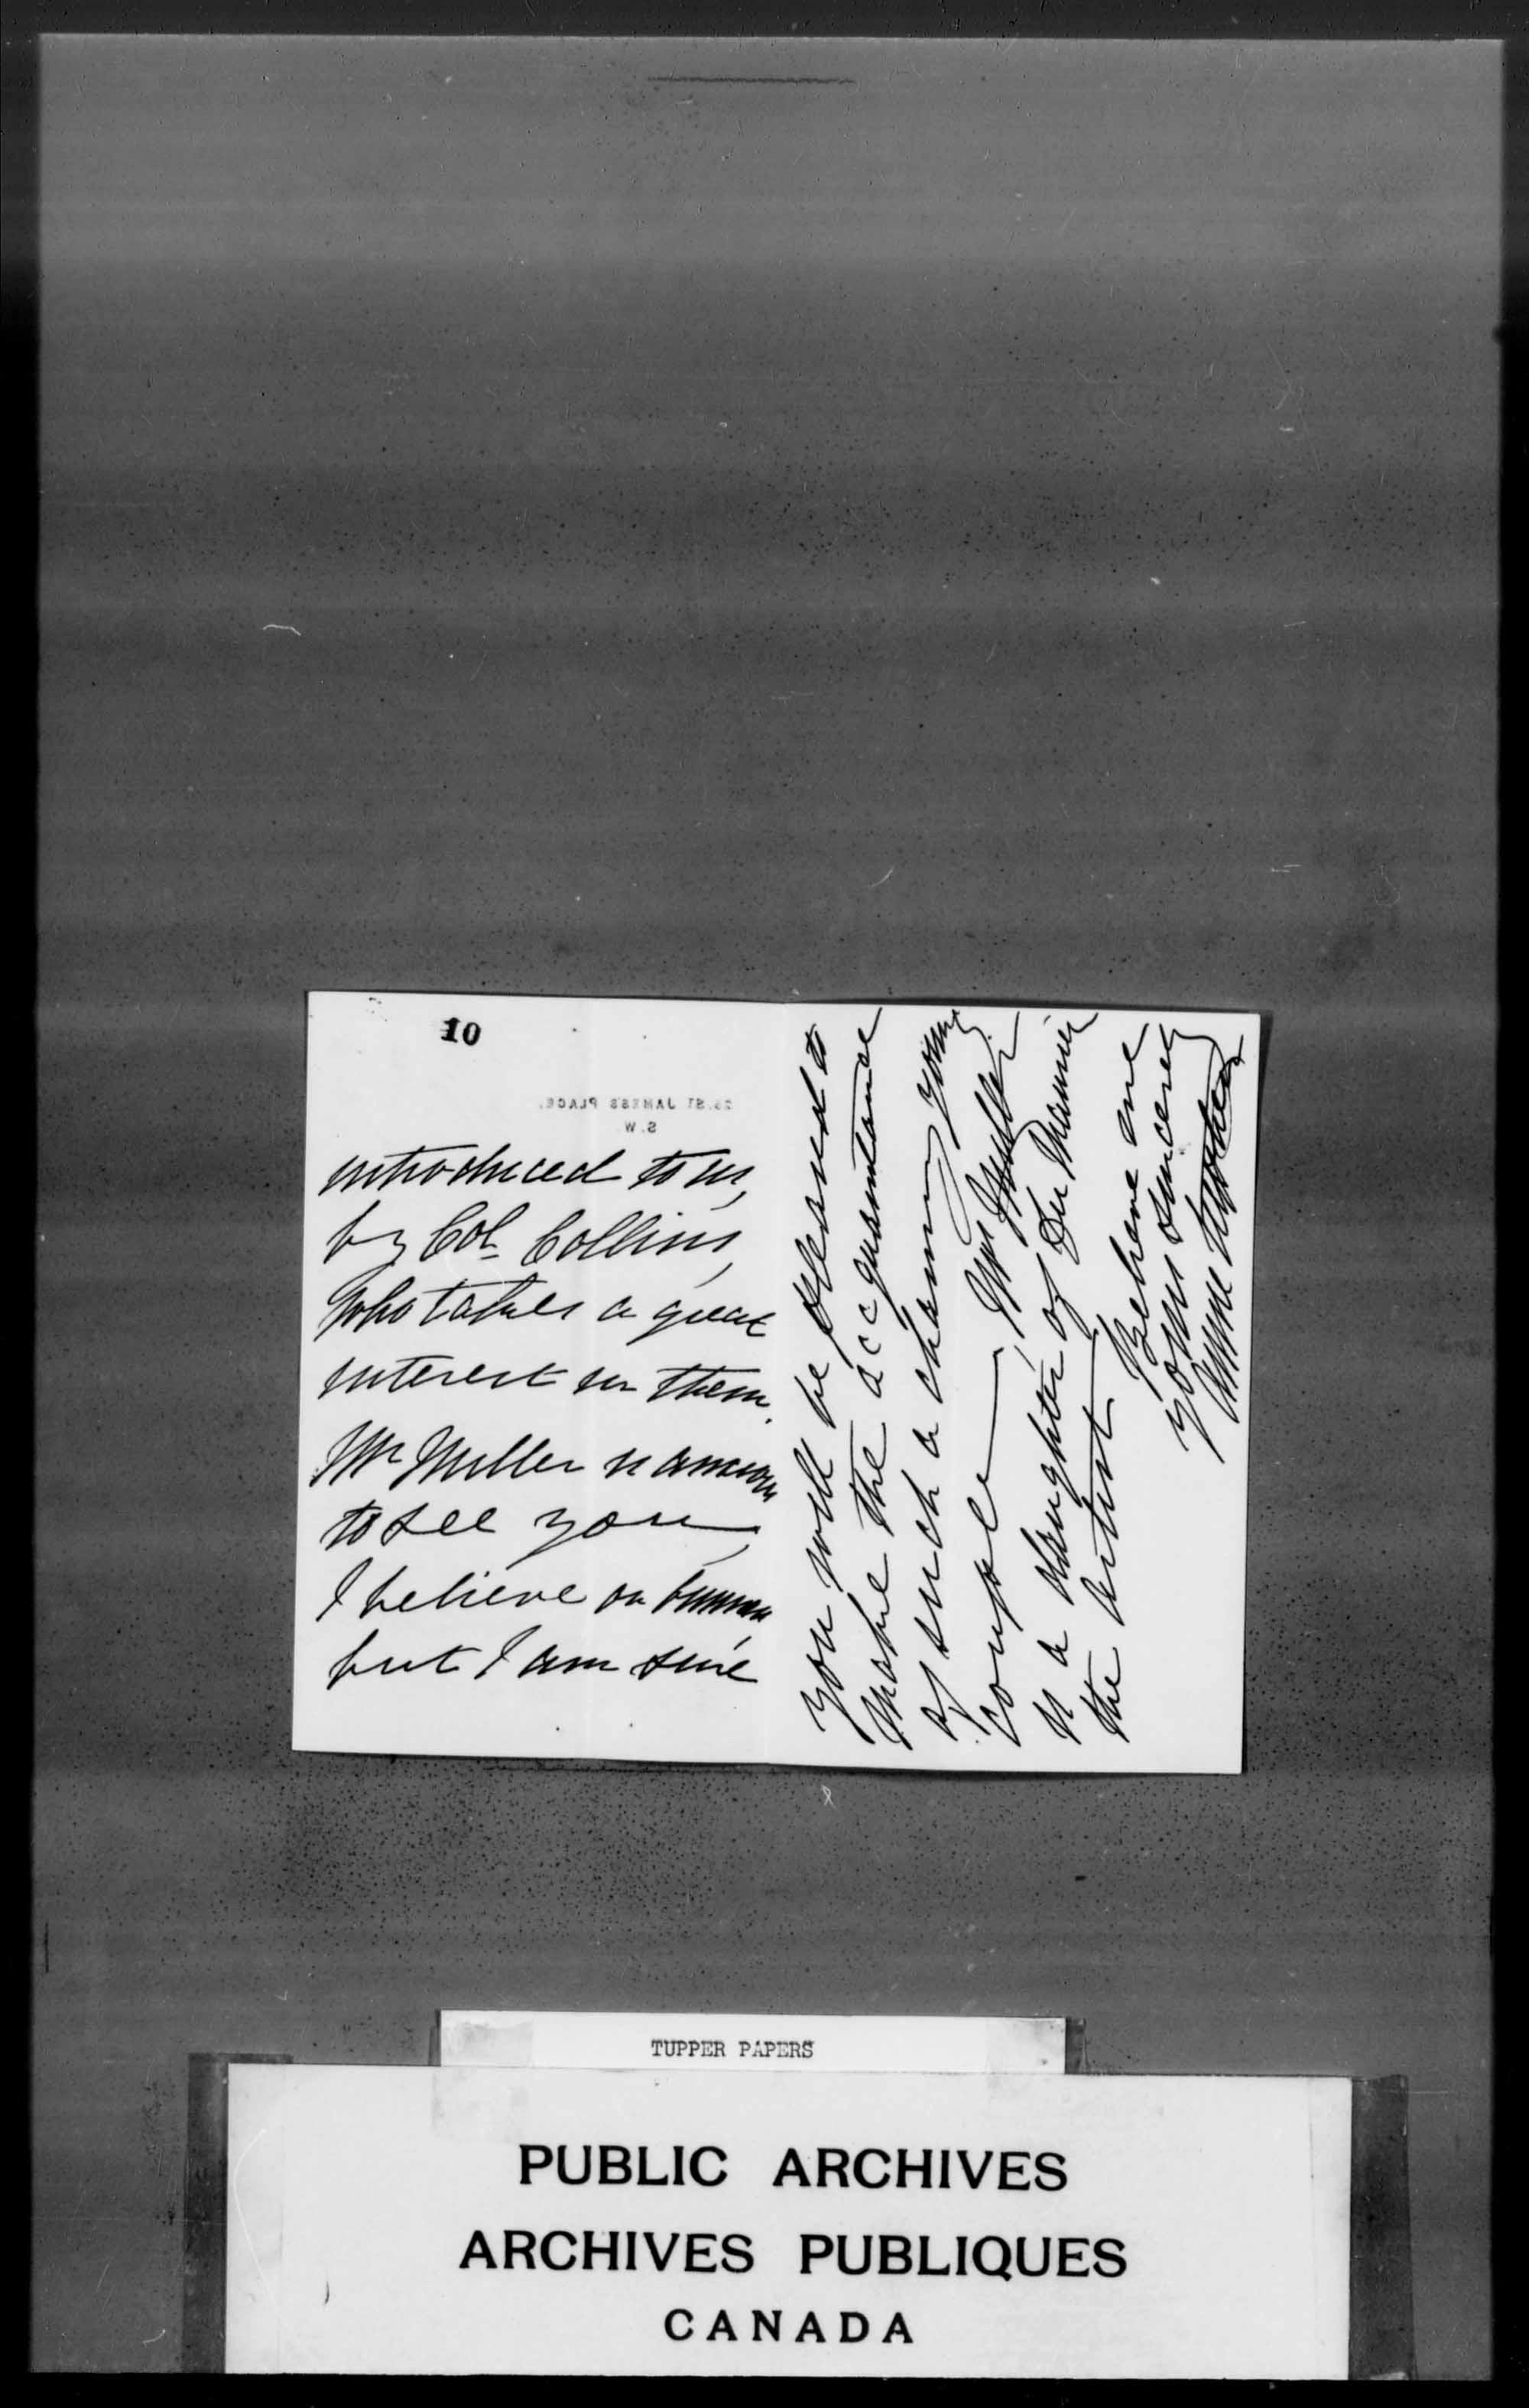 10
25. ST JAMES'S PLACE,
S.W
introduced to us,
by Col. Collins,
who takes a great
interest in them.
Mr Miller is anxious
to see you,
I believe on business
but I am sure
you will be pleased to
make the acquaintance
of such a charming young
couple — Mrs Miller
is a daughter of Du Maurier
the artist
Believe me
yours sincerely
Anne
TUPPER PAPERS
PUBLIC ARCHIVES
ARCHIVES PUBLIQUES
CANADA